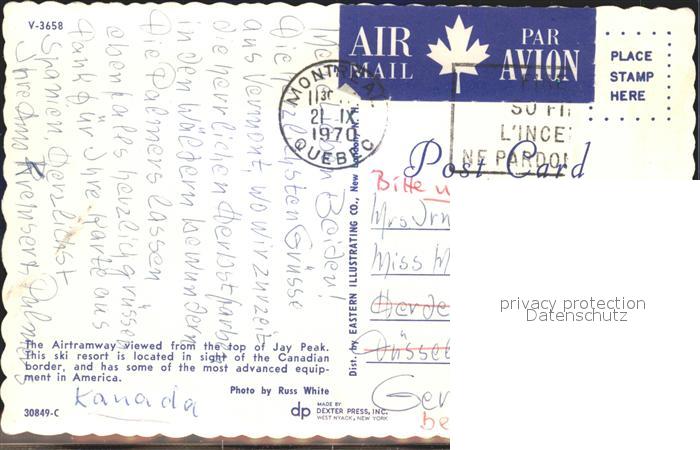 V-3658
AIR MAIL
PAR AVION
PLACE
STAMP
HERE
MONTREAL
21 IX
1970
QUEBEC
L'INCE
NE PARDO
Post Card
Beiden!
Die herzlichsten Grüsse
aus Vermont, wo wir zurzeit
die herrlichen Herbstfarben
in den Wäldern bewundern.
Die Palmers lassen
ebenfalls herzlich grüssen
Dank für Ihre Karte aus
Spanien. Herzlichst
Palmers
Dist. by EASTERN ILLUSTRATING CO., New London, N. H.
Bitte
Mrs. Irm
Miss M
Düssel
Ger
be
The Airtramway viewed from the top of Jay Peak.
This ski resort is located in sight of the Canadian
border, and has some of the most advanced equip-
ment in America.
Photo by Russ White
Kanada
30849-C
dp
MADE BY
DEXTER PRESS, INC.
WEST NYACK, NEW YORK
privacy protection
Datenschutz